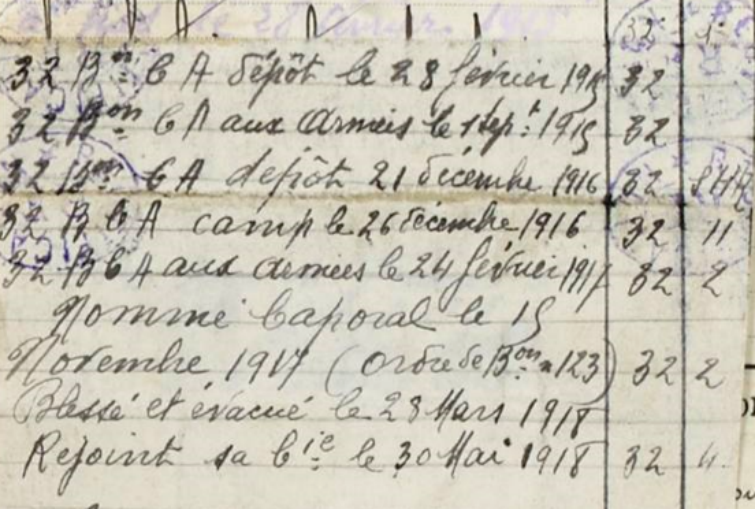 32
32 Bon C A dépôt le 28 février 1915 32
32 Bon C A aux armées le 1 sept. 1915 32
32 Bon C A depôt 21 décembre 1916 32 SHR
32 B C A camp le 26 décembre 1916 32 11
32 B C A aux armées le 24 février 1917 32 2
Nommé Caporal le 15
Novembre 1917 (Ordre de Bon n 123) 32 2
Blessé et évacué le 28 Mars 1918
Rejoint sa Cie le 30 Mai 1918 32 4